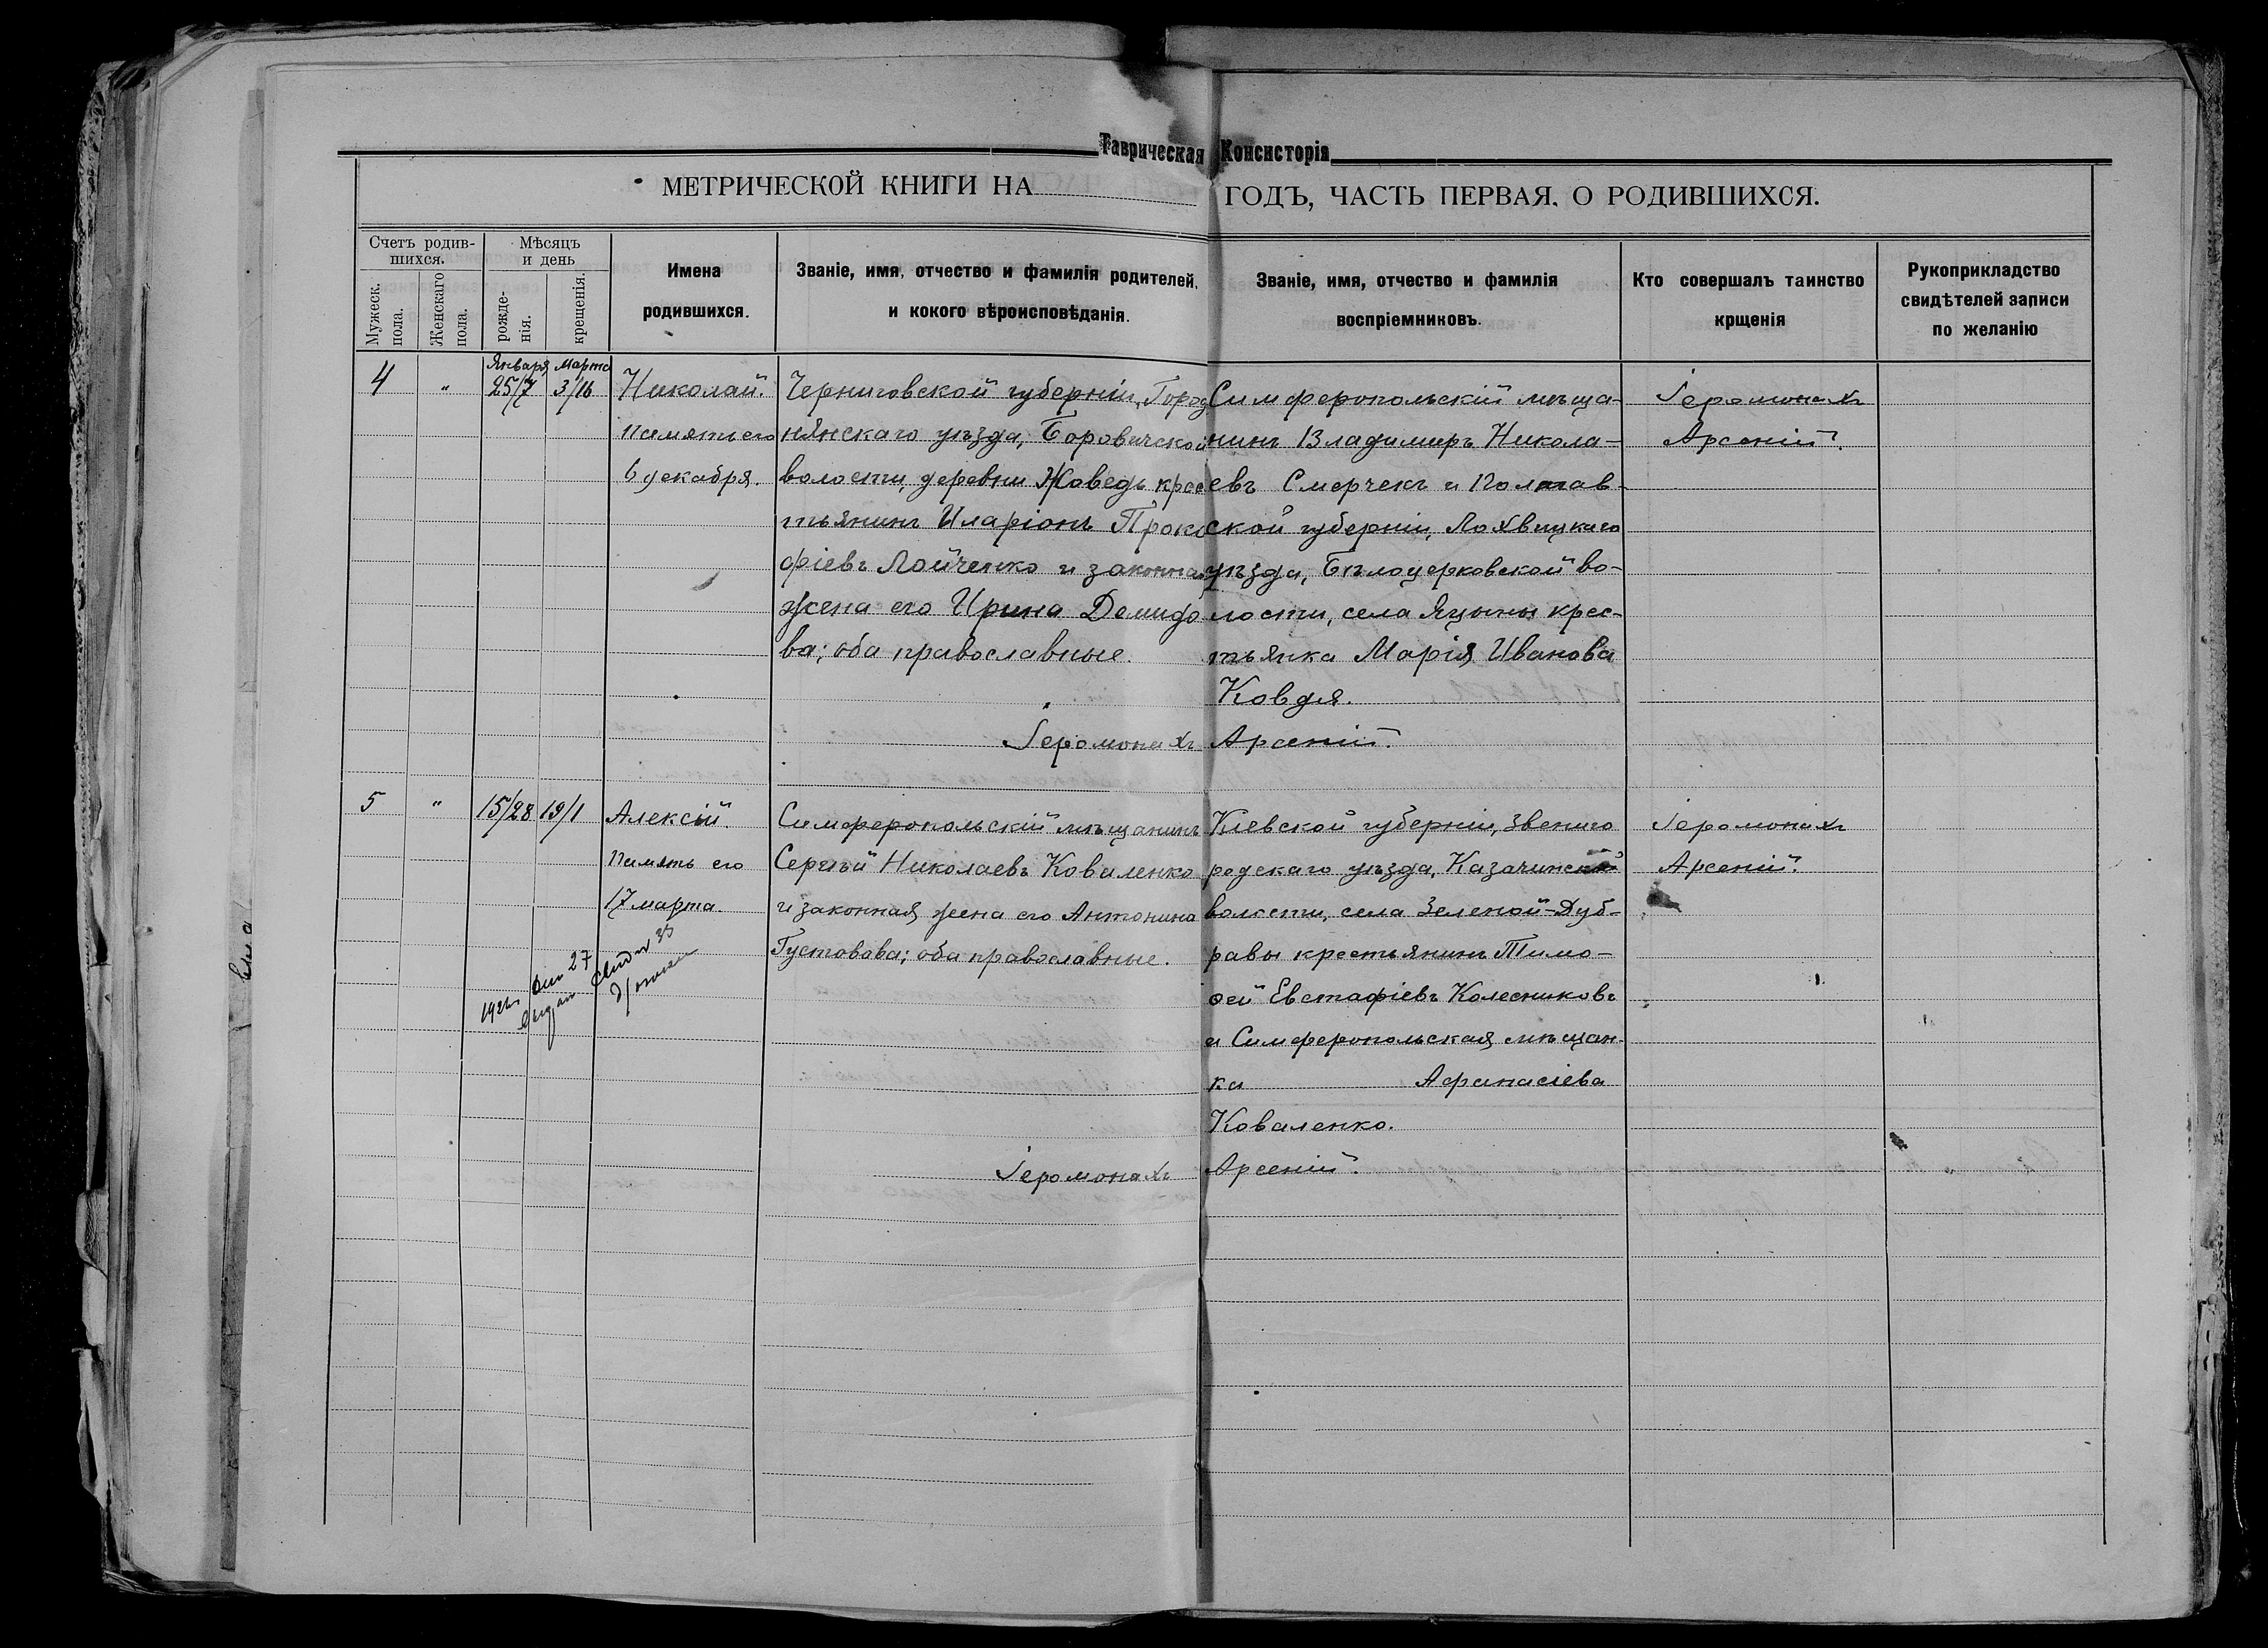 Таврическая Консисторія
МЕТРИЧЕСКОЙ КНИГИ НА ГОДЪ, ЧАСТЬ ПЕРВАЯ, О РОДИВШИХСЯ.
Счетъ родив-
шихся.
Мужеск.
пола.
Женскаго
пола.
Мѣсяцъ
и день
рожде-
нія.
крещенія.
Имена
родившихся.
Званіе, имя, отчество и фамилія родителей,
и кокого вѣроисповѣданія.
Званіе, имя, отчество и фамилія
воспріемниковъ.
Кто совершалъ таинство
крщенія
Рукоприкладство
свидѣтелей записи
по желанію
4
"
Января
25/7
Марта
3/16
Николай.
Память его
6 декабря.
Черниговской губерніи, Город
нянскаго уѣзда, Боровичской
волости, деревни Жоведь крес
тьянинъ Иларіонъ Проко
фіевъ Лойченко и законная
жена его Ирина Демидо
ва; оба православные.
Симферопольскій мѣща-
нинъ Владимиръ Никола-
евъ Смерчекъ и Полтав-
ской губерніи, Лохвицкаго
уѣзда, Бѣлоцерковской во-
лости, села Яцыны крес-
тьянка Марія Иванова
Ковдя.
Іеромонахъ
Арсеній.
Іеромонахъ Арсеній.
5
"
15/28
19/1
Алексій.
Память его
17 марта.
Симферопольскій мѣщанинъ
Сергѣй Николаевъ Коваленко
и законная жена его Антонина
Густовова; оба православные.
Кіевской губерніи, Звениго
родскаго уѣзда, Казачинской
волости, села Зеленой-Дуб-
равы крестьянинъ Тимо-
ѳей Евстафіевъ Колесниковъ
и Симферопольская мѣщан-
ка Афанасіева
Коваленко.
Іеромонахъ
Арсеній.
Іеромонахъ Арсеній.
27